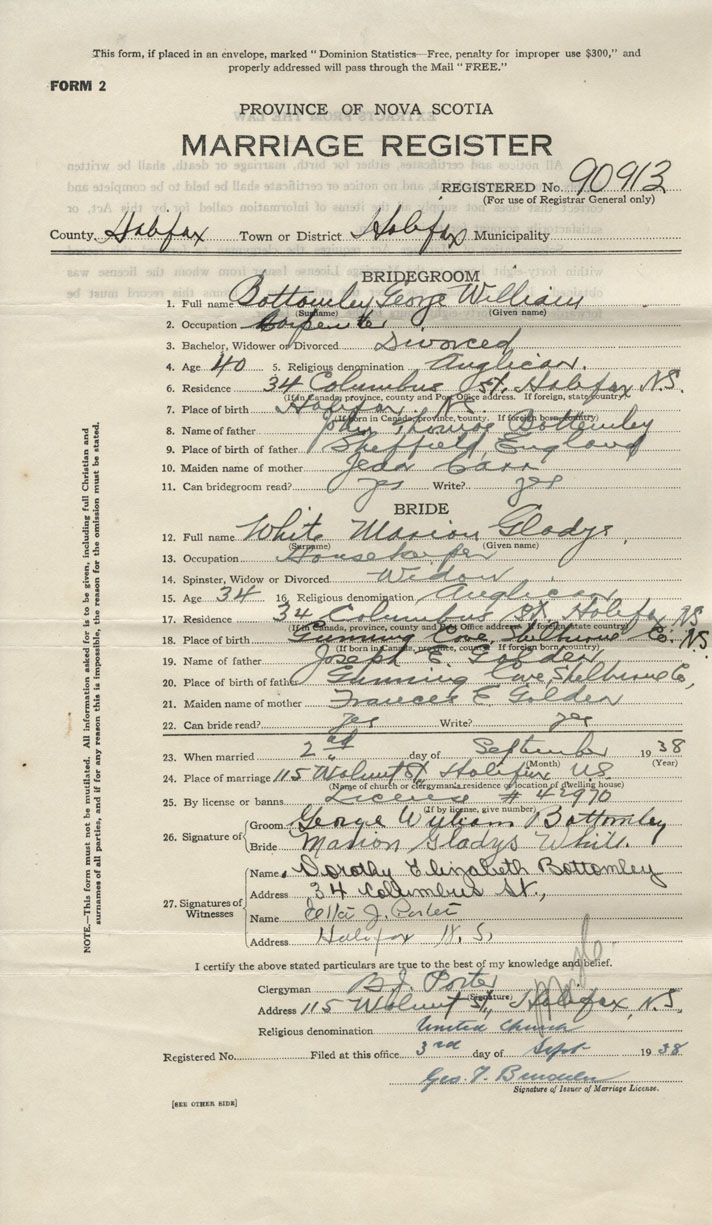 This form, if placed in an envelope, marked "Dominion Statistics—Free, penalty for improper use $300," and
properly addressed will pass through the Mail "FREE."
FORM 2
PROVINCE OF NOVA SCOTIA
MARRIAGE REGISTER
REGISTERED No. 90913
(For use of Registrar General only)
County Halifax Town or District Halifax Municipality
BRIDEGROOM
1. Full name Bottomley George William
(Surname) (Given name)
2. Occupation Carpenter
3. Bachelor, Widower or Divorced Divorced
4. Age 40 5. Religious denomination Anglican.
6. Residence 34 Columbus St. Halifax N.S.
(If in Canada, province, county and Post Office address. If foreign, state country)
7. Place of birth Halifax N.S.
(If born in Canada, province, county. If foreign born country)
8. Name of father John Thomas Bottomley
9. Place of birth of father Sheffield, England
10. Maiden name of mother Carr
11. Can bridegroom read? yes Write? yes
BRIDE
12. Full name White Marion Gladys
(Surname) (Given name)
13. Occupation Housekeeper
14. Spinster, Widow or Divorced Widow
15. Age 34 16. Religious denomination Anglican
17. Residence 34 Columbus St. Halifax NS
(If in Canada, province, county and Post Office address. If foreign, state country)
18. Place of birth Gunning Cove, Shelburne Co. N.S.
(If born in Canada, province, county. If foreign born country)
19. Name of father Joseph E. Golden
20. Place of birth of father Gunning Cove, Shelburne Co,
21. Maiden name of mother Frances E Golden
22. Can bride read? yes Write? yes
23. When married 2nd day of September 1938
(Month) (Year)
24. Place of marriage 115 Walnut St Halifax N.S.
(Name of church or clergyman's residence or location of dwelling house)
25. By license or banns License # 42970
(If by license, give number)
26. Signature of
Groom George William Bottomley
Bride Marion Gladys White.
27. Signatures of Witnesses
Name Dorothy Elizabeth Bottomley
Address 34 Columbus St.,
Name Ella J. Porter
Address Halifax N.S.
I certify the above stated particulars are true to the best of my knowledge and belief.
Clergyman B. J. Porter
(Signature)
Address 115 Walnut St., Halifax, N.S.
Religious denomination United Church
Registered No. Filed at this office 3rd day of Sept 1938
Geo. T.
Signature of Issuer of Marriage License.
[SEE OTHER SIDE]
NOTE.—This form must not be mutilated. All information asked for is to be given, including full Christian and
surnames of all parties, and if for any reason this is impossible, the reason for the omission must be stated.